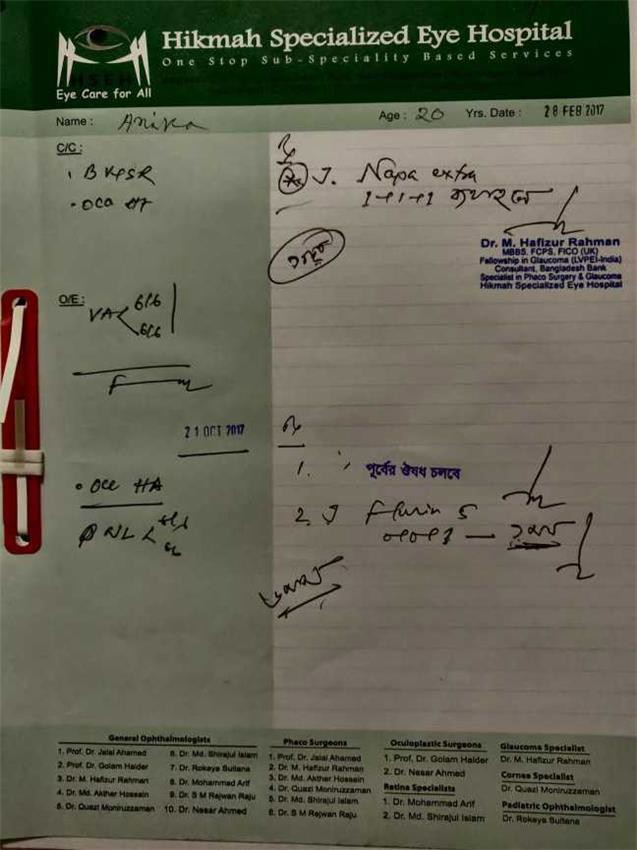 Hikmah Specialized Eye Hospital
One Stop Sub-Speciality Based Services
HSEH
Eye Care for All
Name : Anika Age : 20 Yrs. Date : 28 FEB 2017
C/C :
O/E :
VA 6/6
6/6
J. Napa extra
1+1+1
Dr. M. Hafizur Rahman
MBBS, FCPS, FICO (UK)
Fellowship in Glaucoma (LVPEI-India)
Consultant, Bangladesh Bank
Specialist in Phaco Surgery & Glaucoma
Hikmah Specialized Eye Hospital
21 OCT 2017
• occ HA
1. পূর্বের ঔষধ চলবে
2.
General Ophthalmologists
1. Prof. Dr. Jalal Ahamed
2. Prof. Dr. Golam Haider
3. Dr. M. Hafizur Rahman
4. Dr. Md. Akther Hossein
5. Dr. Quazi Moniruzzaman
6. Dr. Md. Shirajul Islam
7. Dr. Rokeya Sultana
8. Dr. Mohammad Arif
9. Dr. S M Rejwan Raju
10. Dr. Nesar Ahmed
Phaco Surgeons
1. Prof. Dr. Jalal Ahamed
2. Dr. M. Hafizur Rahman
3. Dr. Md. Akther Hossein
4. Dr. Quazi Moniruzzaman
5. Dr. Md. Shirajul Islam
6. Dr. S M Rejwan Raju
Oculoplastic Surgeons
1. Prof. Dr. Golam Haider
2. Dr. Nesar Ahmed
Retina Specialists
1. Dr. Mohammad Arif
2. Dr. Md. Shirajul Islam
Glaucoma Specialist
Dr. M. Hafizur Rahman
Cornea Specialist
Dr. Quazi Moniruzzaman
Pediatric Ophthalmologist
Dr. Rokeya Sultana